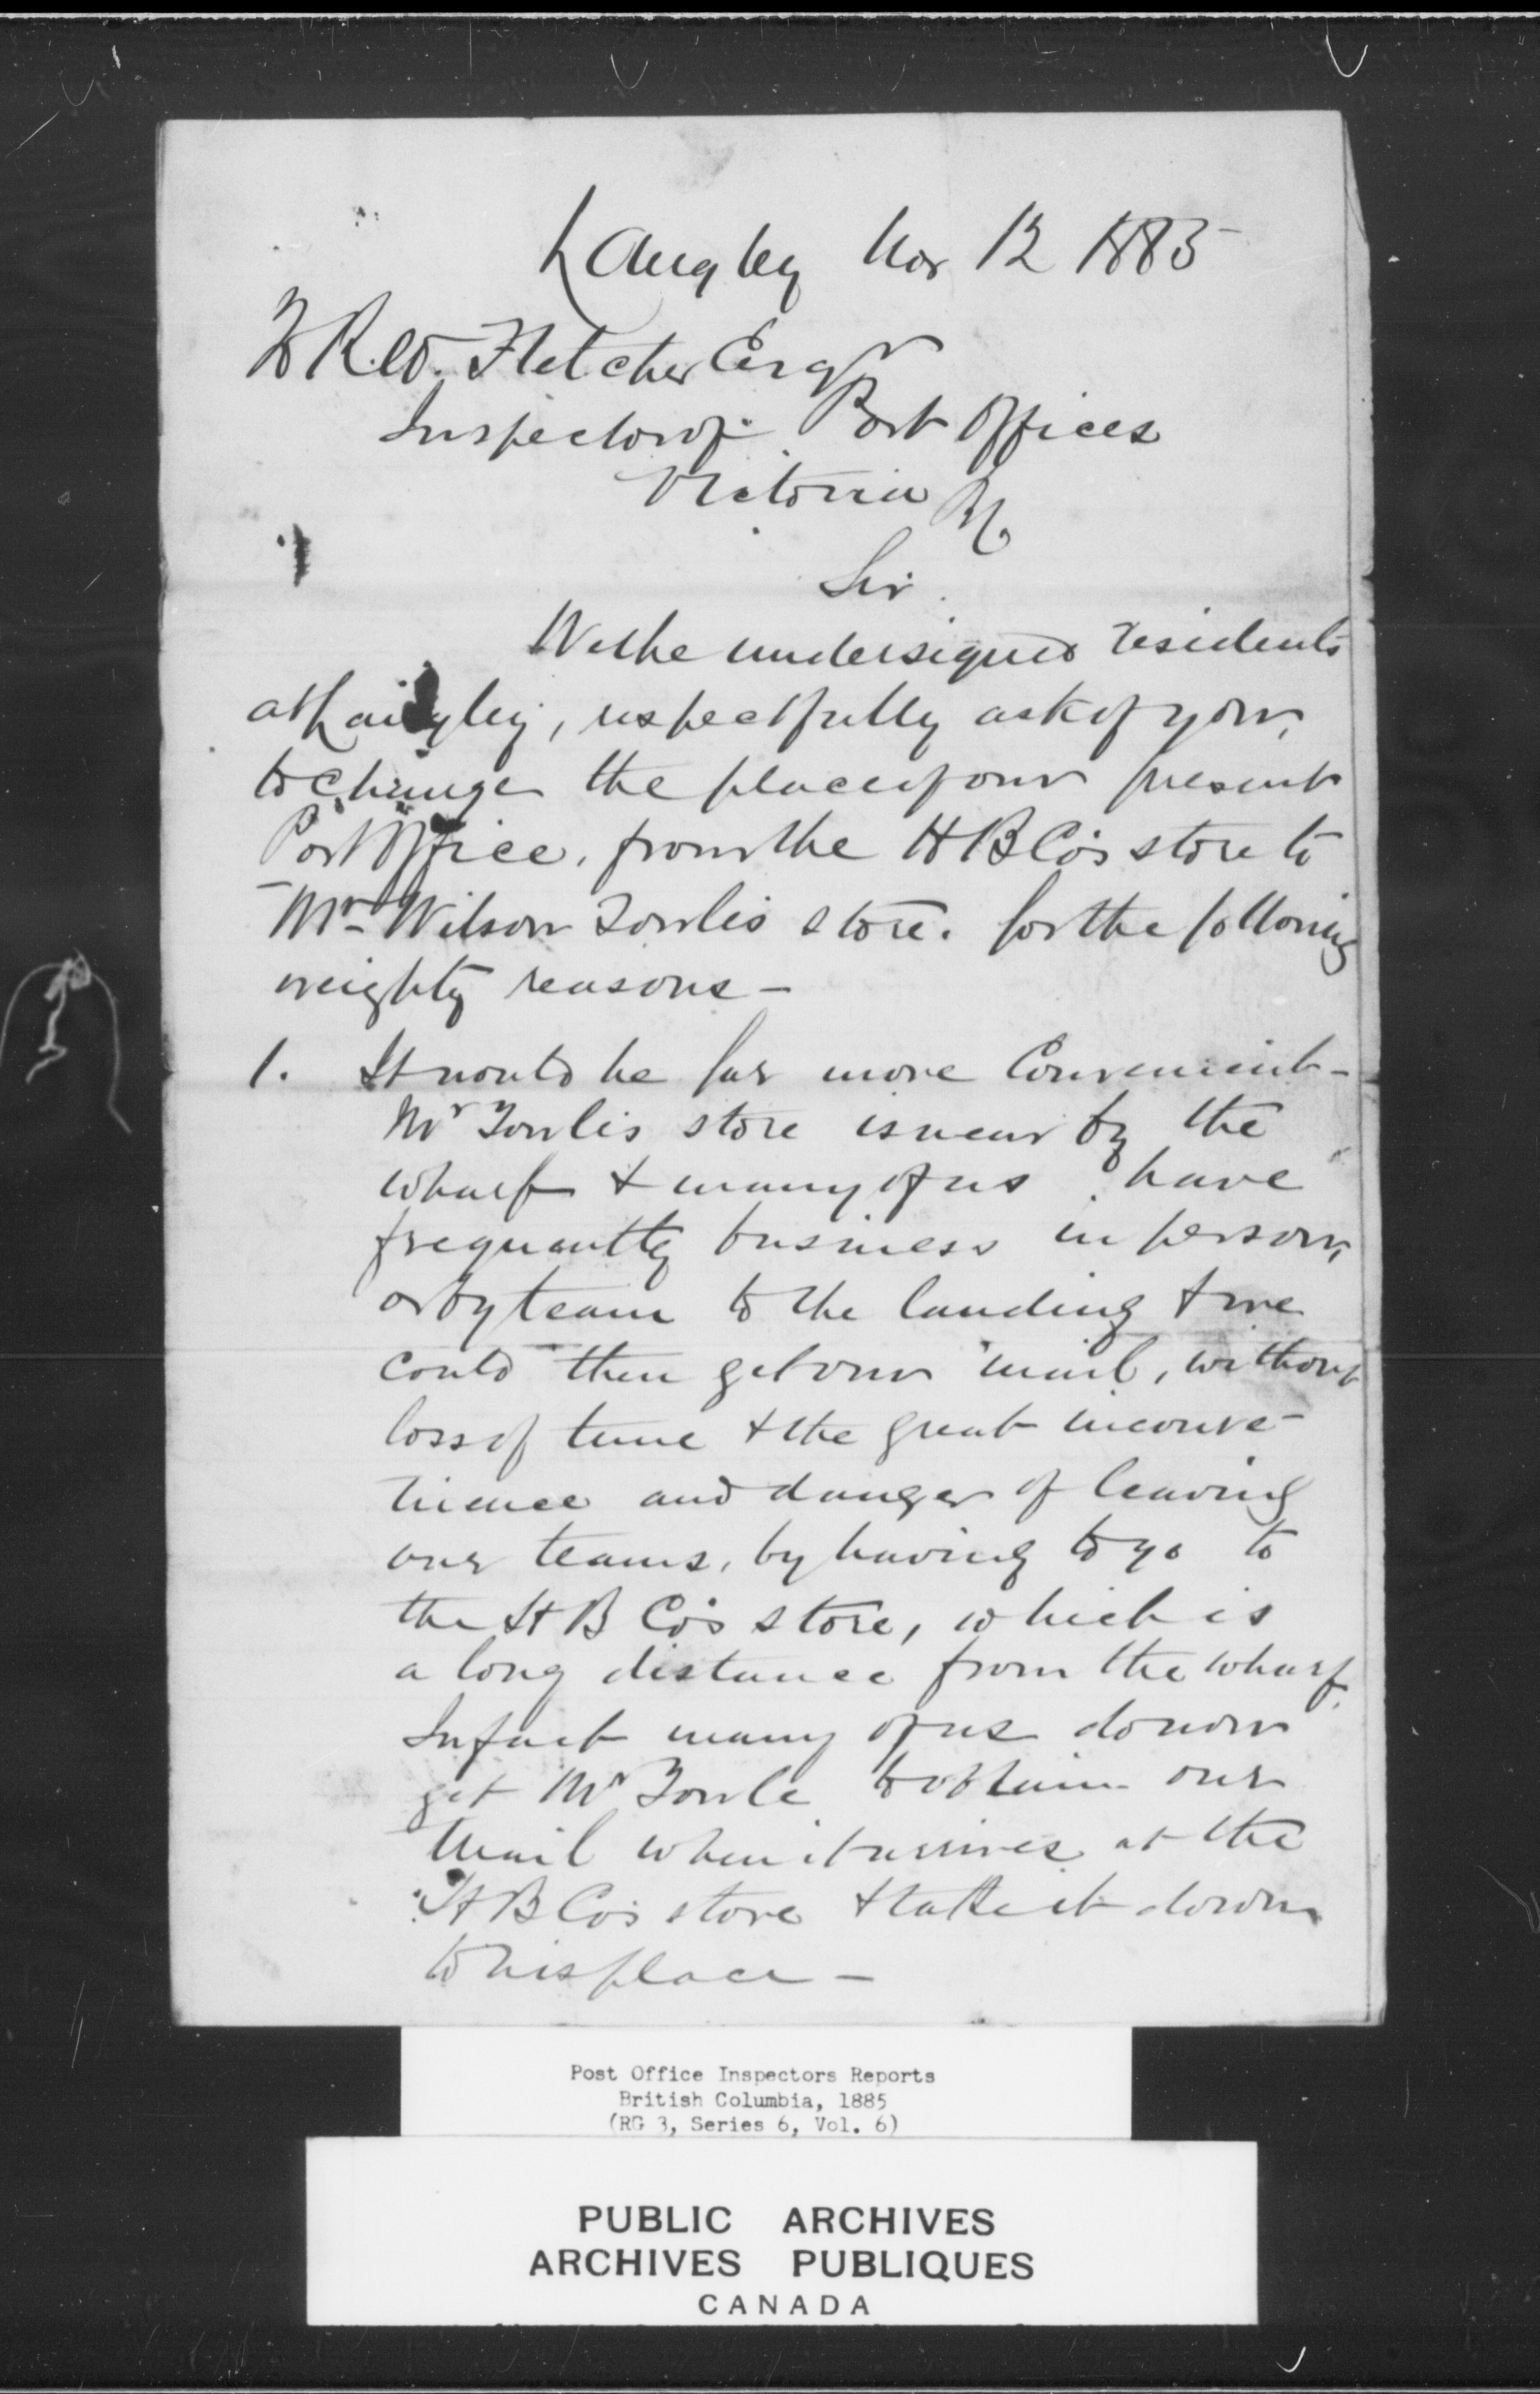 Langley Nov 12 1885
To R.W. Fletcher Esqr
Inspector of Post Offices
Victoria BC.
Sir.
We the undersigned residents
at Langley, respectfully ask of you,
to change the place of our present
Post Office, from the H B Co's store to
Mr Wilson Towle's store. for the following
weighty reasons -
1. It would be far more Convenient -
Mr Towle's store is near by the
wharf & many of us have
frequantly business in person,
or by team to the landing & we
could then get our mail, without
loss of time & the great inconve-
nience and danger of leaving
our teams, by having to go to
the H B Co's store, which is
a long distance from the wharf.
In fact many of us do now
get Mr Towle to obtain our
Mail when it arrives at the
H B Co's store & take it down
to his place -
Post Office Inspectors Reports
British Columbia, 1885
(RG 3, Series 6, Vol. 6)
PUBLIC ARCHIVES
ARCHIVES PUBLIQUES
CANADA